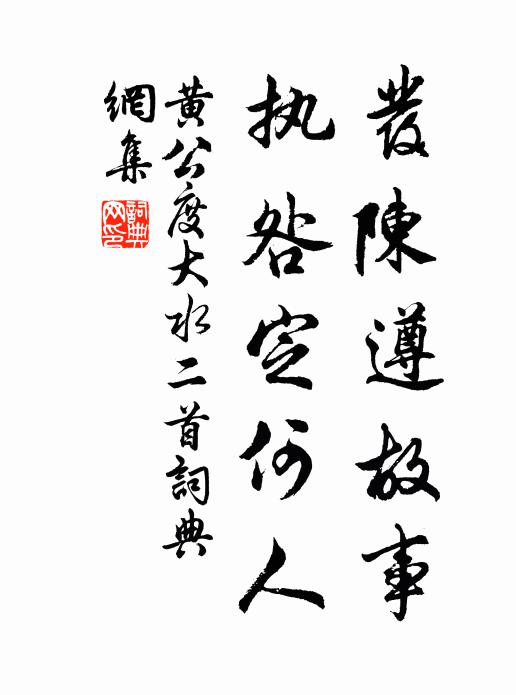 發陳遵故事
执咎定何人
黃公度大水二首詞典
網集
詞典
网印